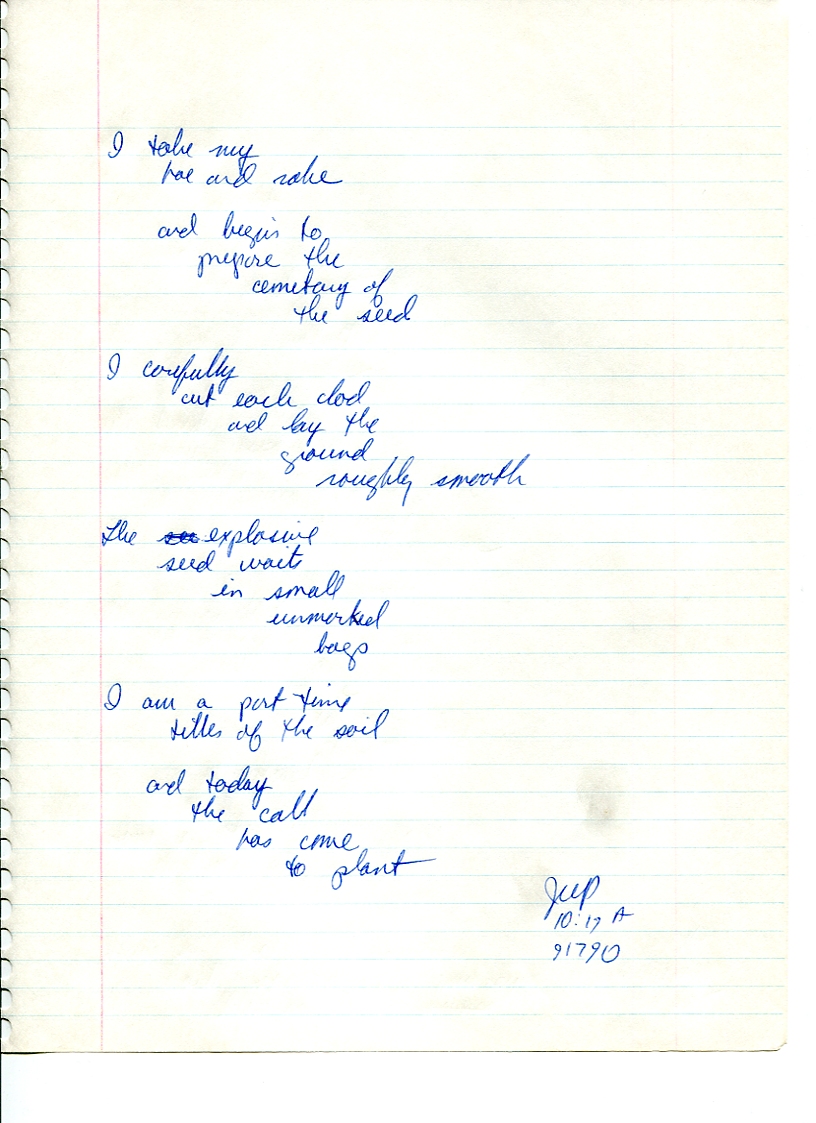 I take my
hoe and rake
and begin to
prepare the
cemetary of
the seed
I carefully
cut each clod
and lay the
ground
roughly smooth
The explosive
seed waits
in small
unmarked
bags
I am a part time
tiller of the soil
and today
the call
has come
to plant
10:17 A
91790